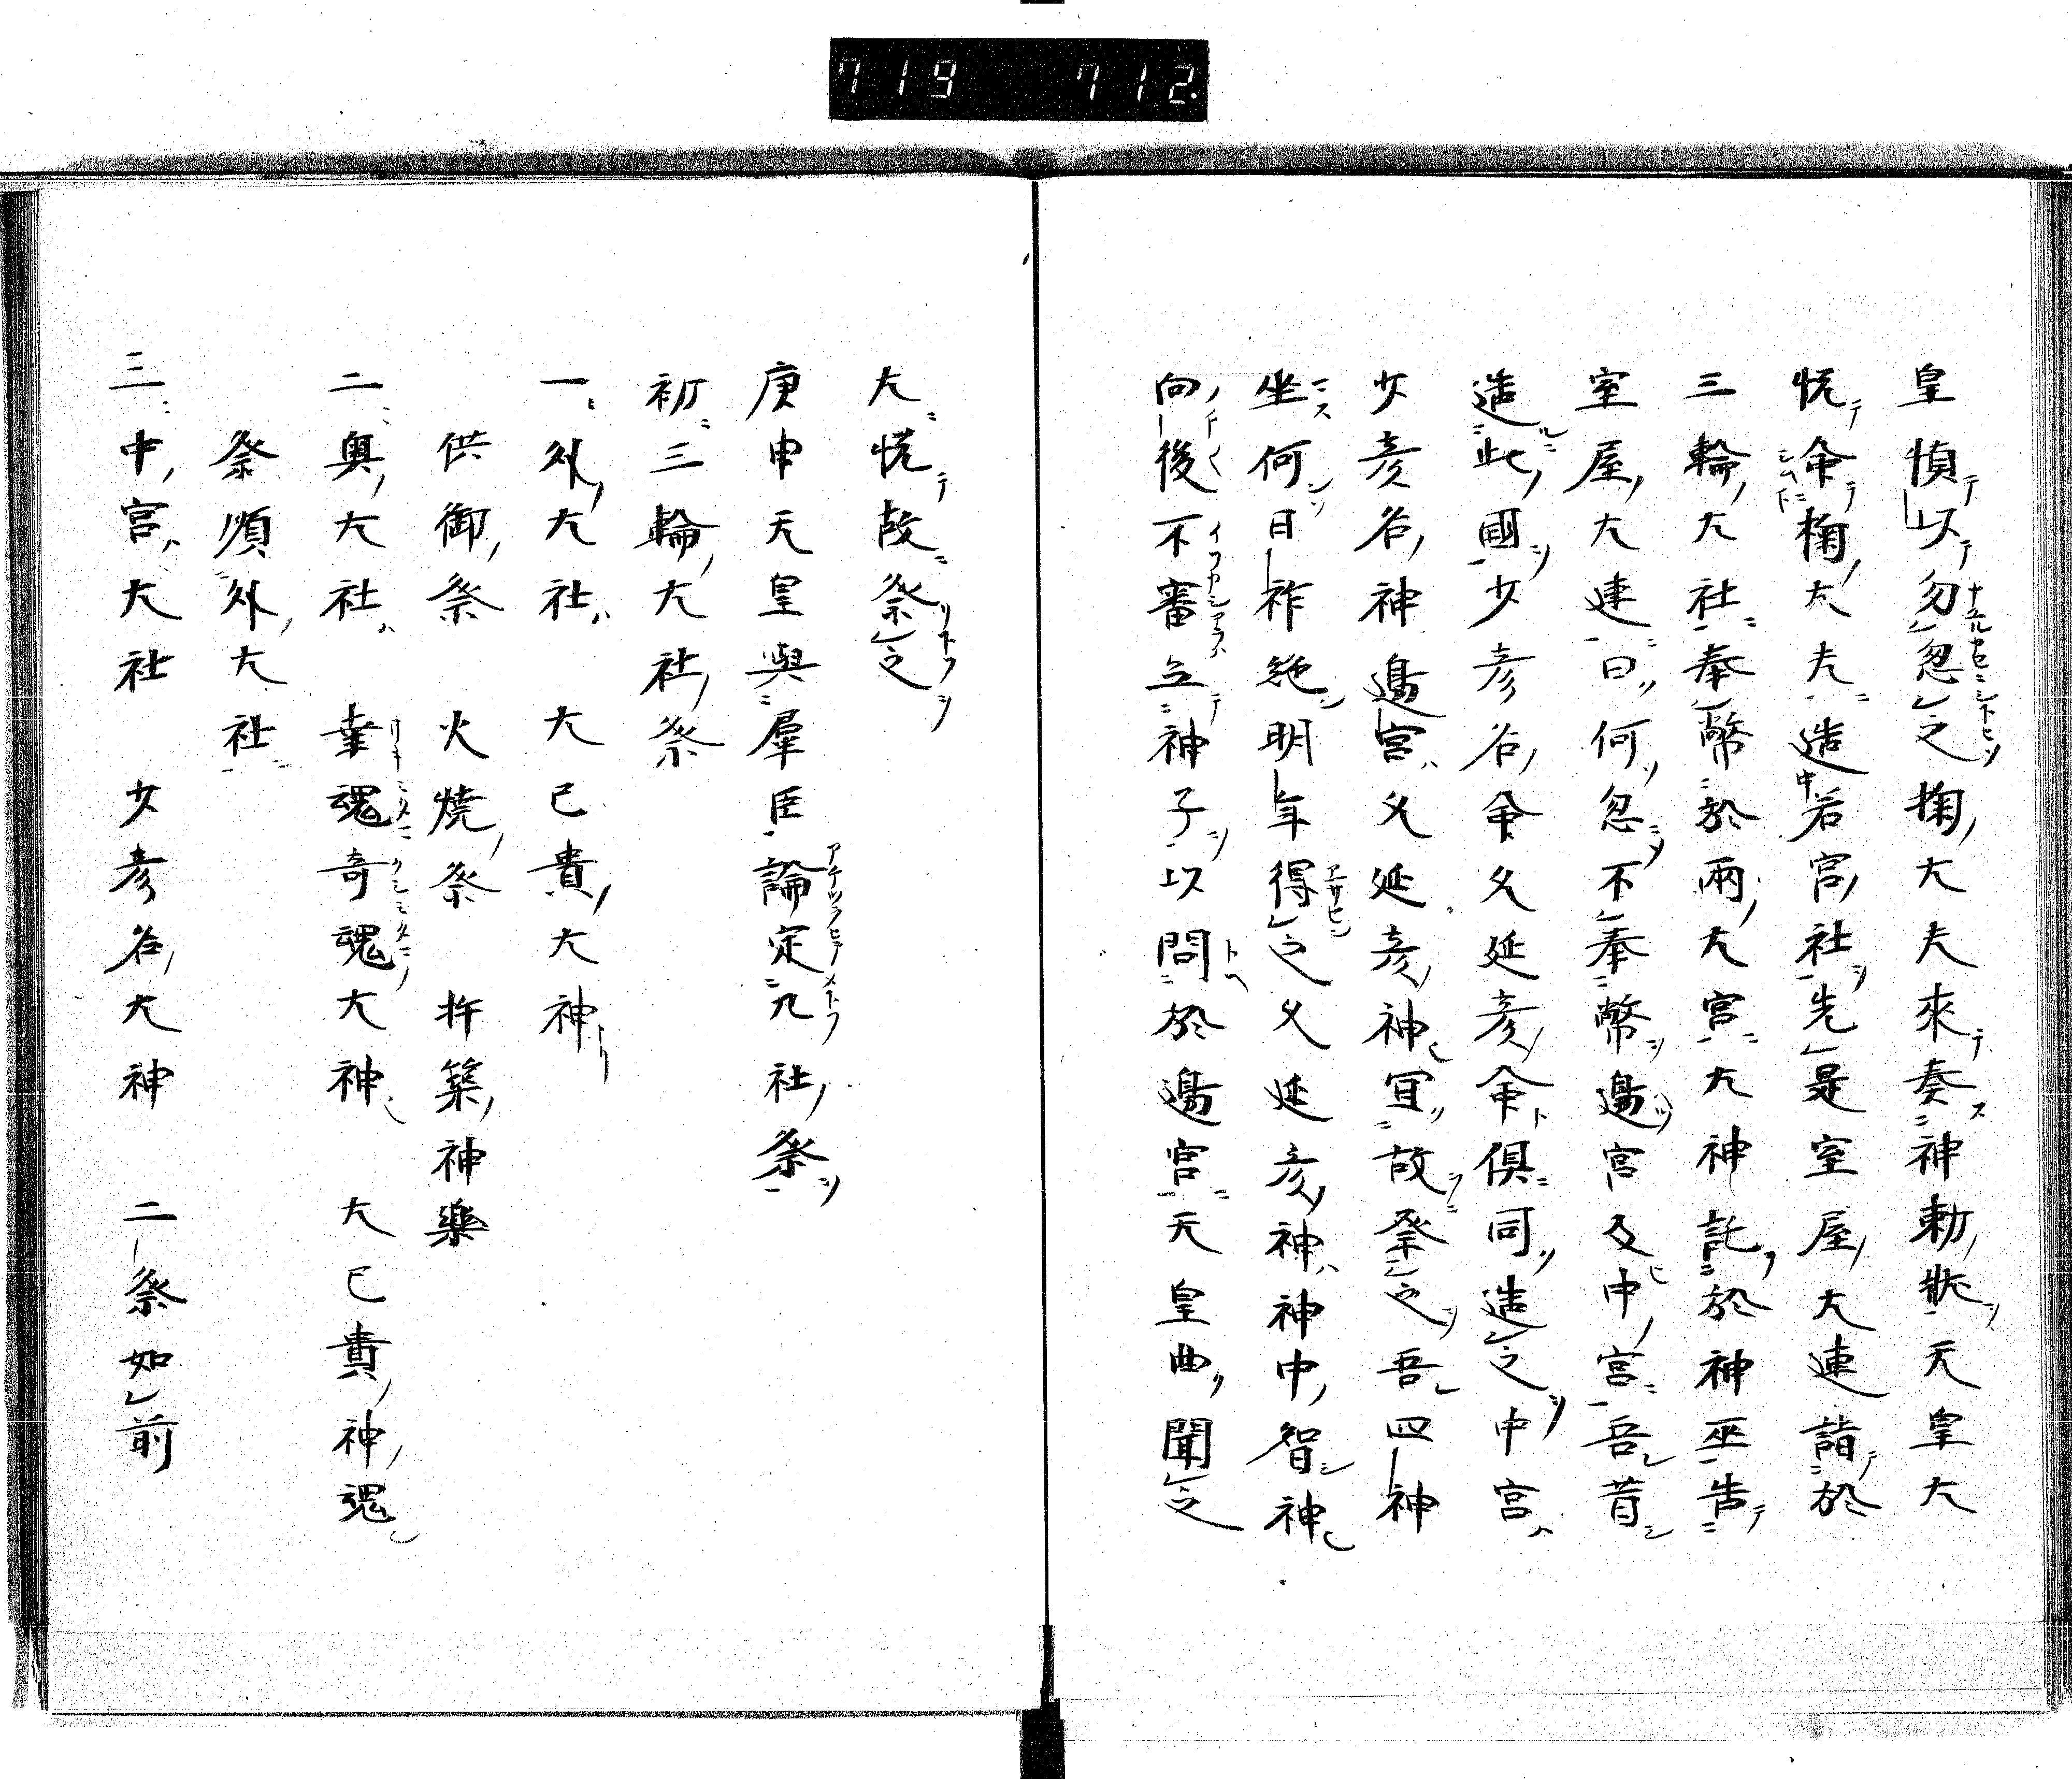 719 712
皇慎以勿忽之掬大夫來奏神勅狀天皇大
悦命掬大夫造若宮社先是室屋大連詣於
三輪大社奉幣於兩大宮大神託於神巫告
室屋大連曰何忽不奉幣邊宮及中宮吾昔
造此國少彦名命久延彦命俱同造之中宮
少彦名神邊宮久延彦神宜故祭之吾四神
坐何日祚絶明年得之久延彦神神中智神
向後不審立神子以問於邊宮天皇曲聞之
大悦故祭之
庚申天皇與羣臣論定九社祭
初三輪大社祭
一外大社大已貴大神
供御祭 火燒祭 杵築神樂
二奥大社 幸魂奇魂大神 大已貴神魂
祭順外大社
三中宮大社 少彦名大神 二祭如前